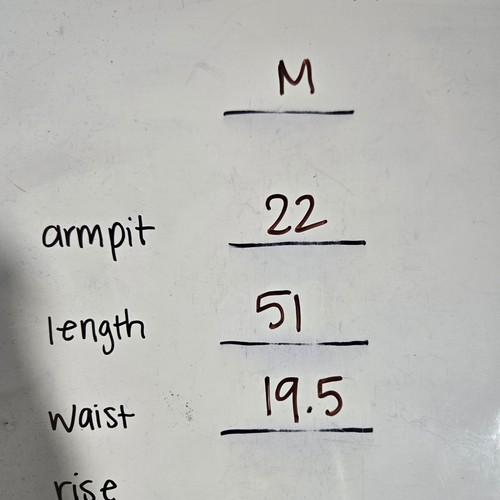 M
armpit 22
length 51
waist 19.5
rise